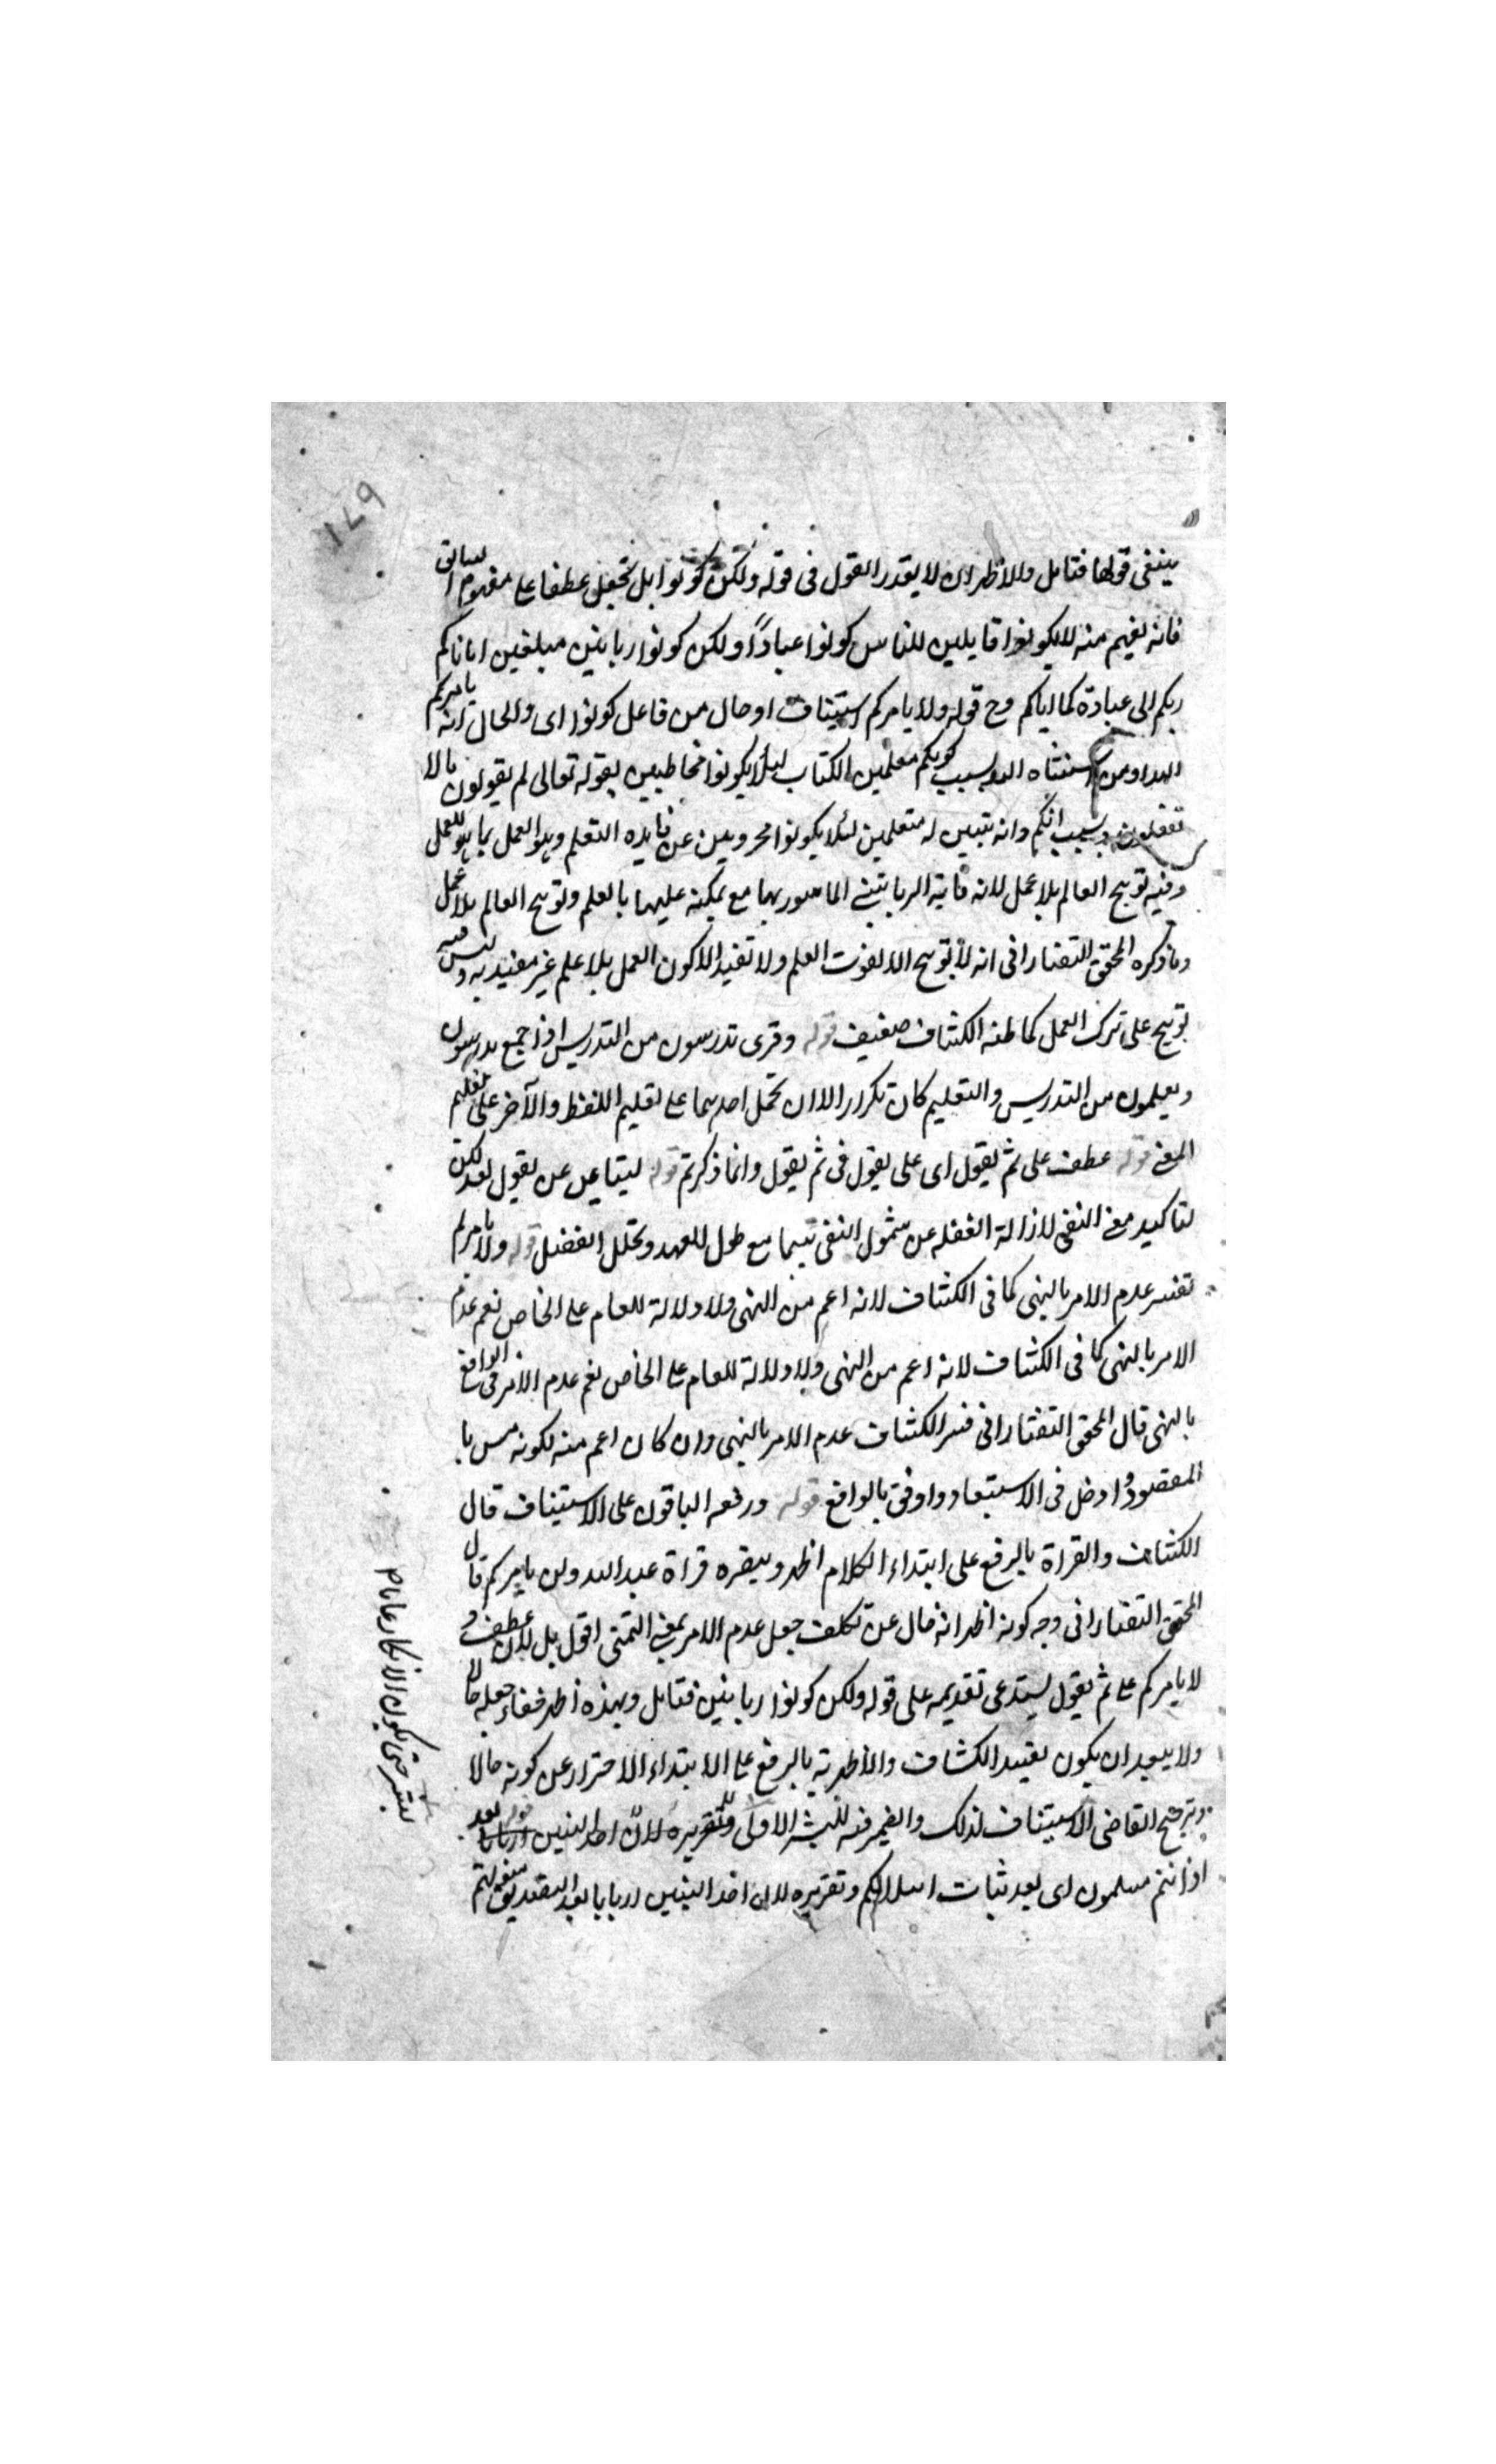 ١٧٩
ينبغي قولها فتامل والاظهر ان لا يقدر القول في قوله ولكن كونوا بل تجعل عطفا على مفهوم السابق
فانه يفهم منه لا يكونوا قايلين للناس كونوا عبادا ولكن كونوا ربانيين مبلغين اياناكم
ربكم الى عبادة كما اياكم وح قوله ولا يامركم استيناف او حال من فاعل كونوا اى والحال انه يامركم
الله او من استثناه الله بسبب كونكم معلمين الكتاب ليلا يكونوا مخاطبين بقوله تعالى لم يقولون ما لا
تفعلون وبسبب انكم وانه بتبين له متعلمين لئلا يكونوا محرومين عن فايده التعلم وهو العمل بما هو للعمل
وفيه توبيخ العالم بلا عمل لانه فاته الربانية المامور بها مع تمكنه عليها بالعلم وتوبيخ العالم بلا عمل
وما ذكره المحقق التفتازانى انه لا توبيخ الا لفوت العلم ولا تفيد الا كون العمل بلا علم غير مفيد به وليس فيه
توبيخ على ترك العمل كما ظنه الكشاف ضعيف قوله وقرى تدرسون من التدريس اذ اجمع يدرسون
ويعلمون من التدريس والتعليم كان تكرار الا ان تحمل احدهما على تعليم اللفظ والآخر على تعليم
المعنى قوله عطف على ثم يقول اى على يقول فى ثم يقول وانما ذكر ثم قوله ليتاعين عن يقول بعد لكن
لتاكيد معنى النفى لازالة الغفلة عن شمول النفى سيما مع طول العهد وتخلل الفصل قوله ولا يامركم
تفسير عدم الامر بالنهى كما فى الكشاف لانه اعم من النهى ولا دلالة للعام على الخاص نعم عدم
الامر بالنهى كما فى الكشاف لانه اعم من النهى ولا دلالة للعام على الخاص نعم عدم الامر فى الواقع
بالنهى قال المحقق التفتازانى فسر الكشاف عدم الامر بالنهى وان كان اعم منه لكونه مس با
المقصود وادخل فى الاستبعاد واوفق بالواقع قوله ورفعه الباقون على الاستيناف قال
الكشاف والقراة بالرفع على ابتداء الكلام اظهر وينصره قراة عبد الله ولن يامركم قال
المحقق التفتازانى وجه كونه اظهر انه خال عن تكلف جعل عدم الامر بمعنى النهى اقول بل لان عطف و
لا يامركم على ثم يقول يستدعى تقديمه على قوله ولكن كونوا ربانيين فتامل وبهذه اظهر خفاء جعله حالا
ولا يبعد ان يكون تقييد الكشاف والاظهرية بالرفع على الابتداء الاحتراز عن كونه حالا
وترجيح القاضى الاستيناف لذلك والضمير فيه للبشر الاولى وتقريره لان اخذ النبيين اربابا قوله بعد
اذ انتم مسلمون اى بعد ثبات اسلامكم وتقريره لان اخذ النبيين اربابا بعد التصديق
لبشر حتى يكون الانكار عاما م